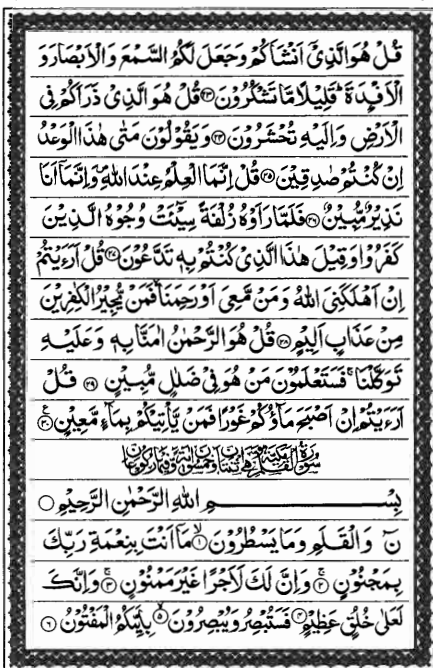 قُلْ هُوَ الَّذِيْۤ اَنْشَاَكُمْ وَجَعَلَ لَكُمُ السَّمْعَ وَالْاَبْصَارَ وَ
الْاَفْـِٕدَةَ ؕ قَلِيْلًا مَّا تَشْكُرُوْنَ ﴿۲۳﴾ قُلْ هُوَ الَّذِيْ ذَرَاَكُمْ فِي
الْاَرْضِ وَاِلَيْهِ تُحْشَرُوْنَ ﴿۲۴﴾ وَيَقُوْلُوْنَ مَتٰى هٰذَا الْوَعْدُ
اِنْ كُنْتُمْ صٰدِقِيْنَ ﴿۲۵﴾ قُلْ اِنَّمَا الْعِلْمُ عِنْدَ اللّٰهِ وَاِنَّمَاۤ اَنَا
نَذِيْرٌ مُّبِيْنٌ ﴿۲۶﴾ فَلَمَّا رَاَوْهُ زُلْفَةً سِيْٓـَٔتْ وُجُوْهُ الَّذِيْنَ
كَفَرُوْا وَقِيْلَ هٰذَا الَّذِيْ كُنْتُمْ بِهٖ تَدَّعُوْنَ ﴿۲۷﴾ قُلْ اَرَءَيْتُمْ
اِنْ اَهْلَكَنِيَ اللّٰهُ وَمَنْ مَّعِيَ اَوْ رَحِمَنَا ۙ فَمَنْ يُّجِيْرُ الْكٰفِرِيْنَ
مِنْ عَذَابٍ اَلِيْمٍ ﴿۲۸﴾ قُلْ هُوَ الرَّحْمٰنُ اٰمَنَّا بِهٖ وَعَلَيْهِ
تَوَكَّلْنَا ۚ فَسَتَعْلَمُوْنَ مَنْ هُوَ فِيْ ضَلٰلٍ مُّبِيْنٍ ﴿۲۹﴾ قُلْ
اَرَءَيْتُمْ اِنْ اَصْبَحَ مَآؤُكُمْ غَوْرًا فَمَنْ يَّاْتِيْكُمْ بِمَآءٍ مَّعِيْنٍ ﴿۳۰﴾ ع
سُوْرَةُ الْقَلَمِ مَكِّيَّةٌ وَّهِيَ اثْنَتَانِ وَخَمْسُوْنَ اٰيَةً وَّفِيْهَا رُكُوْعَانِ
بِسْمِ اللّٰهِ الرَّحْمٰنِ الرَّحِيْمِ
نٓ وَالْقَلَمِ وَمَا يَسْطُرُوْنَ ۙ﴿۱﴾ مَاۤ اَنْتَ بِنِعْمَةِ رَبِّكَ
بِمَجْنُوْنٍ ۚ﴿۲﴾ وَاِنَّ لَكَ لَاَجْرًا غَيْرَ مَمْنُوْنٍ ۚ﴿۳﴾ وَاِنَّكَ
لَعَلٰى خُلُقٍ عَظِيْمٍ ﴿۴﴾ فَسَتُبْصِرُ وَيُبْصِرُوْنَ ۙ﴿۵﴾ بِاَيِّكُمُ الْمَفْتُوْنُ ﴿۶﴾